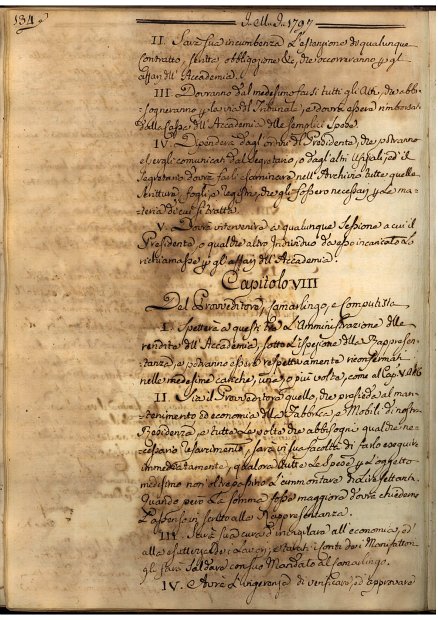 134
1797
II. Sarà sua incumbenza l'estenzione di qualunque
Contratto, Scritta, obbligazione &c, che occorreranno pgl
affari dll' Accademia.
III. Dovranno dal medesimo farsi tutti gli Atti, che abbi-
sogneranno p la via del Tribunale, e dovrà essere rimborsato
dalla Cassa dll' Accademia delle semplici Spese.
IV. Dipenderà dagli ordini dl Presidente, che potranno
essergli comunicati dal Segretario, o dagli altri Uffiziali, ed il
Segretario dovrà farli esaminare nell' Archivio tutte quelle
Scritture, fogli, e registri, che gli fossero necessarj p le ma-
terie di cui si tratta.
V. Dovrà intervenire a qualunque Sessione a cui il
Presidente, o qualche altro Individuo da esso incaricato lo
richiamasse p gl' affari dll' Accademia.
Capitolo VIII
Del Provveditore, Camarlingo, e Computista
I. Spetterà a questi tre l'Amministrazione dlle
rendite dll' Accademia, sotto l'ispezione dlla Rappresen-
tanza, e potranno essere respettivamente riconfermati
nelle medesime cariche, una, o più volte, come al Cap. V.
II. Sia il Provveditore quello, che presieda al man-
tenimento ed economia dlla Fabbrica, e Mobili di nostra
Residenza, e tutte le volte che abbisogni qualche ne-
cessario resarcimento, sarà in sua facoltà di farlo eseguire
immediatamente, qualora tutte le Spese p l'oggetto
medesimo non oltrepassino l'ammontare di Lire settanta.
Quando però la somma fosse maggiore dovrà chiederne
l'assenso in scritto alla Rappresentanza.
III. Sarà sua cura d'invigilare all' economia, ed
alla esattezza dei lavori, e tarati i conti dei Manifattori
gli farà saldare con suo Mandato al Camarlingo.
IV. Avrà l'ingerenza di verificare, ed approvare